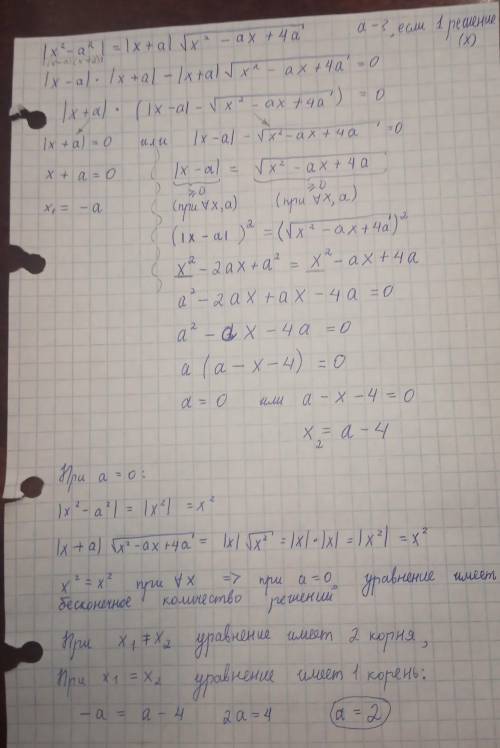 |x² - a²| = |x+a| √x² - ax + 4a   a - ?, если 1 решение
(x)
|x-a| · |x+a| - |x+a| √x² - ax + 4a = 0
|x+a| · (|x-a| - √x² - ax + 4a) = 0
|x+a| = 0 или |x-a| - √x² - ax + 4a = 0
x + a = 0   |x-a| = √x² - ax + 4a
≥0 ≥0
x₁ = -a   (при ∀x,a) (при ∀x,a)
(|x-a|)² = (√x² - ax + 4a)²
x² - 2ax + a² = x² - ax + 4a
a² - 2ax + ax - 4a = 0
a² - ax - 4a = 0
a (a - x - 4) = 0
a = 0 или a - x - 4 = 0
x₂ = a - 4
При a = 0:
|x² - a²| = |x²| = x²
|x + a| √x² - ax + 4a = |x| √x² = |x| · |x| = |x²| = x²
x² = x² при ∀x => при a = 0 уравнение имеет
бесконечное количество решений
При x₁ ≠ x₂ уравнение имеет 2 корня,
При x₁ = x₂ уравнение имеет 1 корень:
-a = a - 4   2a = 4   a = 2